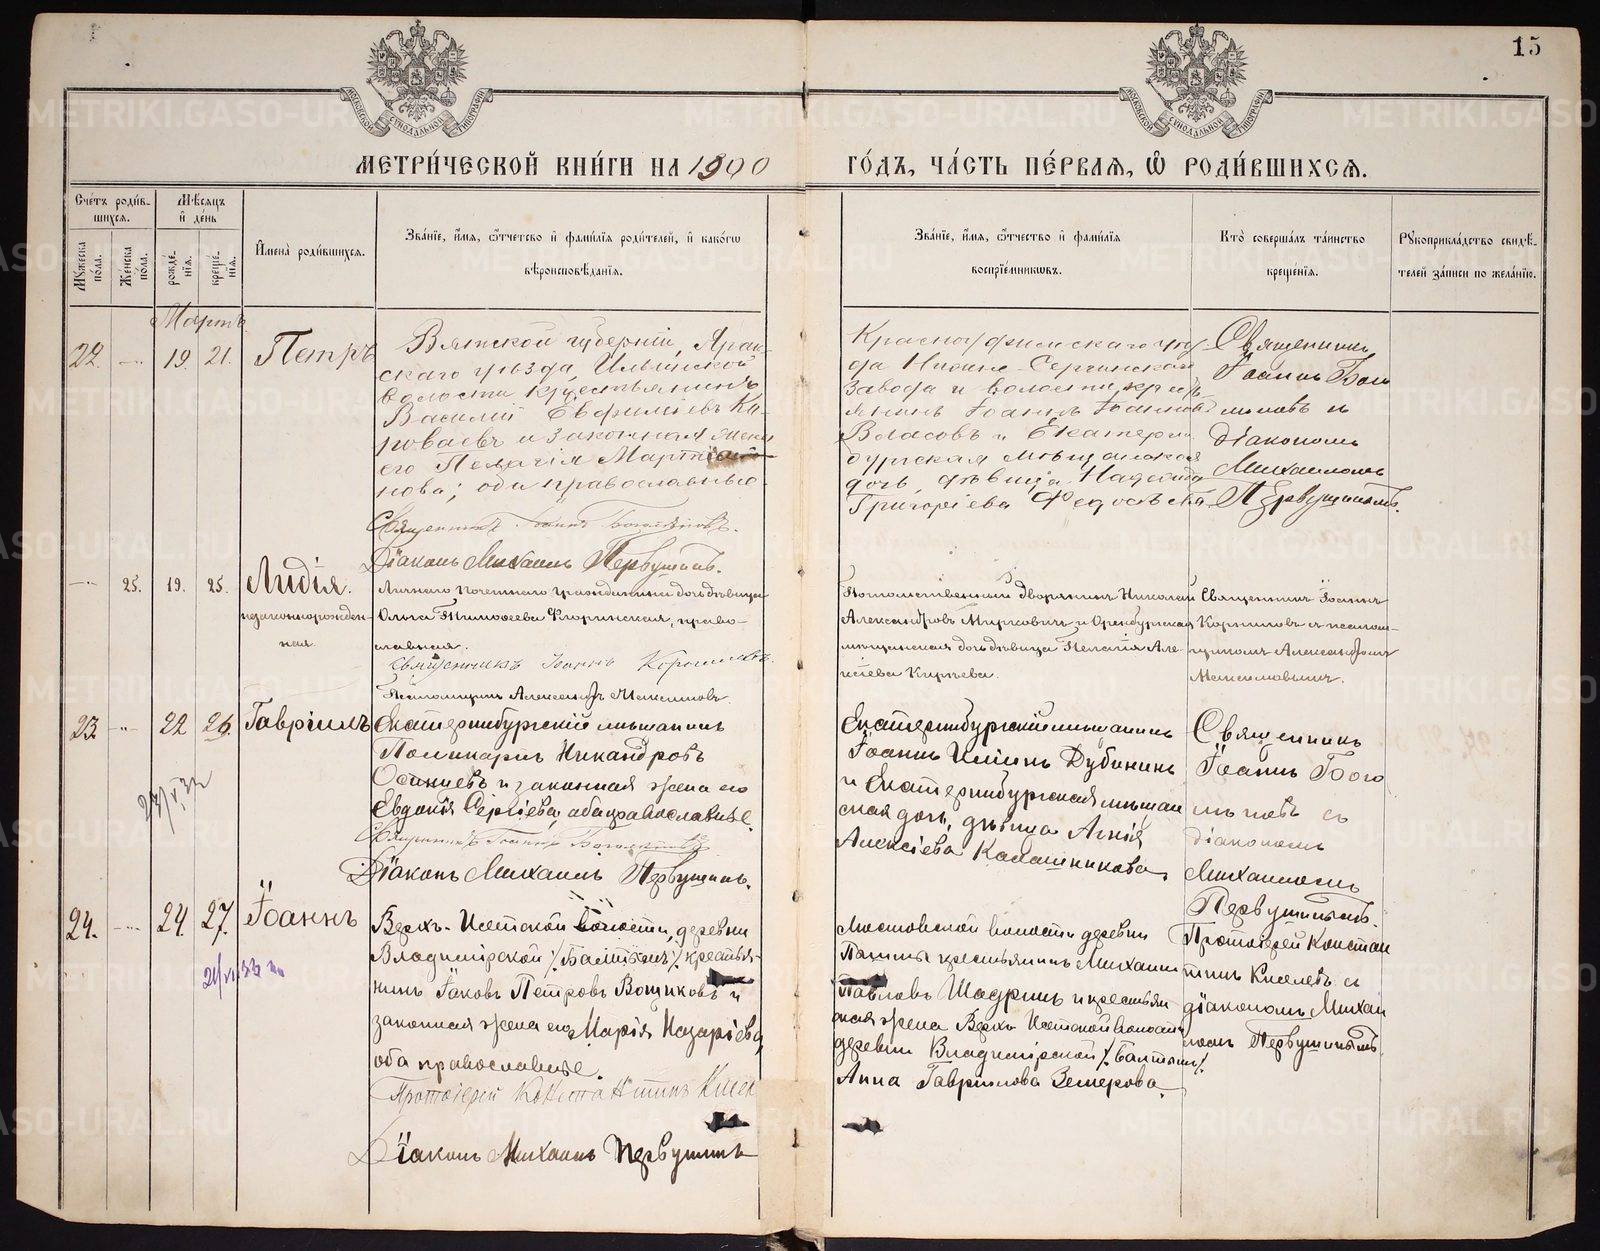 15
МЕТРИ́ЧЕСКОЙ КНИ́ГИ НА 1900
ГО́ДЪ, ЧА́СТЬ ПЕ́РВАѦ, Ѡ҆ РОДИ́ВШИХСѦ.
Сче́тъ роди́в-
шихсѧ.
Мѣ́сѧцъ
и҆ де́нь
Мꙋ́жеска по́ла.
Же́нска по́ла.
рожде́нїѧ.
креще́нїѧ.
И҆мена̀ роди́вшихсѧ.
Зва́нїе, и҆́мѧ, ѻ҆́тчество и҆ фами́лїѧ роди́телей, и҆ како́гѡ
вѣроисповѣ́данїѧ.
Зва́нїе, и҆́мѧ, ѻ҆́тчество и҆ фами́лїѧ
воспрїе́мникѡвъ.
Кто̀ соверша́лъ та́инство
креще́нїѧ.
Рꙋкоприкла́дство свидѣ́-
телей за́писи по жела́нїю.
Мартъ
22. — 19. 21. Петръ
Вятской губерніи, Яран-
скаго уѣзда, Ильинской
волости, крестьянинъ
Василій Евфиміевъ Ка-
роваевъ и законная жена
его Пелагія Мартиніа-
нова; оба православные.
Священникъ Іоаннъ Богомяновъ.
Діаконъ Михаилъ Первушинъ.
Красноуфимскаго уѣз-
да Нижне-Сергинскаго
завода и волости, крест-
янинъ Іоаннъ Іоанновъ
Власовъ и Екатерин-
бургская мѣщанская
дочь, дѣвица Надежда
Григоріева
Священникъ
Іоаннъ Бого
съ
діакономъ
Михаиломъ
Первушинымъ.
— 25. 19. 25. Лидія.
незаконнорожден-
ная.
Личнаго Почетнаго гражданина дочь дѣвица
Ольга Тимофеева Флоринская, право-
славная.
Священникъ Іоаннъ
Псаломщикъ Александръ Максимовъ.
Потомственный дворянинъ Николай
Александровъ Мирковичъ и Оренбургская
мѣщанская дочь дѣвица Пелагія Але-
ксіева Киреева.
Священникъ Іоаннъ
съ псалом-
щикомъ Александромъ
Максимовымъ.
23. — 22 26. Гавріилъ
Екатеринбургскій мѣщанинъ
Поликарпъ Никандровъ
Осинцевъ и законная жена его
Евдокія Сергіева, оба православные.
Священникъ Іоаннъ
Діаконъ Михаилъ Первушинъ.
Екатеринбургскій мѣщанинъ
Іоаннъ Ильинъ Дубининъ
и Екатеринбургская мѣщан
ская дочь, дѣвица Агнія
Алексіева Калашникова.
Священникъ
Іоаннъ Бого
съ
діакономъ
Михаиломъ
Первушинымъ.
24. — 24. 27. Іоаннъ
Верхъ-Исетской волости, деревни
Владимірской /:Балтымъ:/ крестья-
нинъ Іаковъ Петровъ Вощиковъ и
законная жена его Марія Назаріева,
оба православные.
Протоіерей Константинъ Кисел
Діаконъ Михаилъ Первушинъ
Мостовской волости деревни
крестьянинъ Михаилъ
Павловъ Шадринъ и крестьян
ская жена Верхъ Исетской волости
деревни Владимірской /:Балтымъ:/
Анна Гавриилова Земерова.
Протоіерей Констан
тинъ Киселевъ съ
діакономъ Михаи
ломъ Первушинымъ.